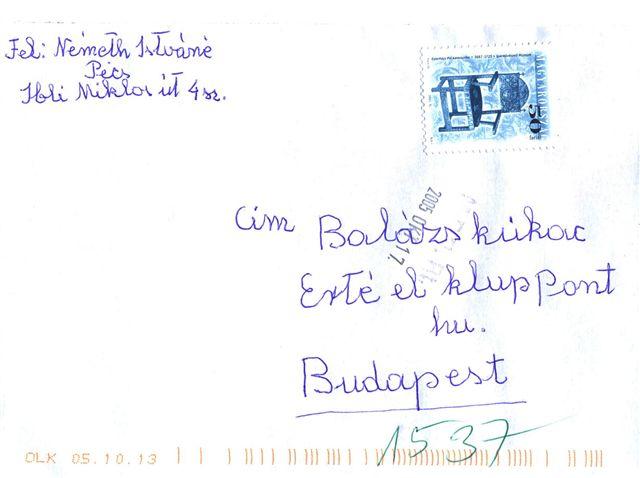 Fel: Németh Istváné
Pécs
Ibli Miklos út 4 sz.
MAGYARORSZÁG
50
2005 OKT 17.
Cím Balázs kükac
Exté el klupPont
hu.
Budapest
1537
OLK 05.10.13